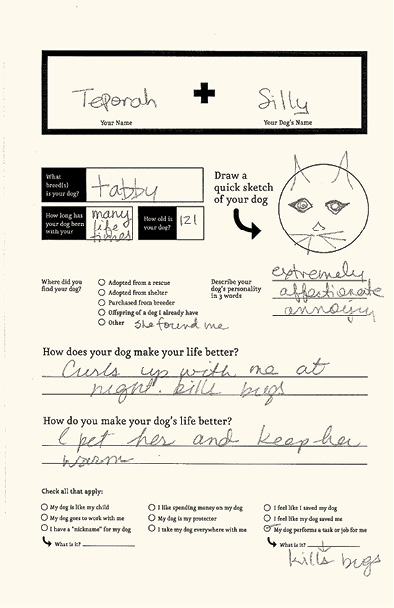 Teporah + Silly
Your Name Your Dog's Name
What breed(s) is your dog? tabby
How long has your dog been with your many life times
How old is your dog? 121
Draw a quick sketch of your dog
Where did you find your dog?
Adopted from a rescue
Adopted from shelter
Purchased from breeder
Offspring of a dog I already have
Other She found me
Describe your dog's personality in 3 words
extremely
affectionate
annoying
How does your dog make your life better?
Curls up with me at
night. kills bugs
How do you make your dog's life better?
I pet her and keep her
warm
Check all that apply:
My dog is like my child
My dog goes to work with me
I have a "nickname" for my dog
What is it?
I like spending money on my dog
My dog is my protector
I take my dog everywhere with me
I feel like I saved my dog
I feel like my dog saved me
My dog performs a task or job for me
What is it?
kills bugs